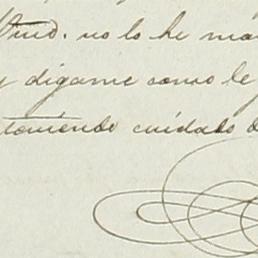 Vmd. no lo he má
y digame como le
teniendo cuidado d